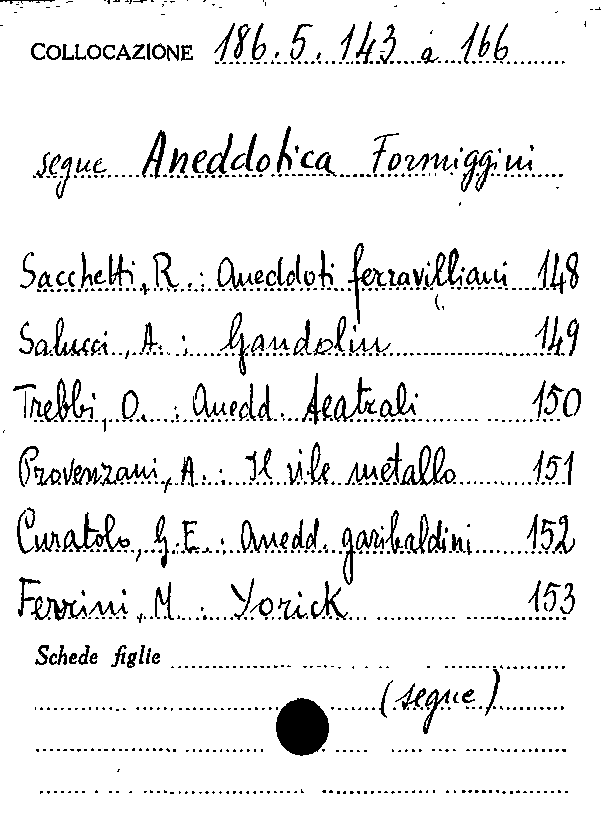 COLLOCAZIONE 186.5.143 a 166
segue Aneddotica Formiggini
Sacchetti, R.: Aneddoti ferravilliani 148
Salucci, A.: Gandolin 149
Trebbi, O.: Anedd. teatrali 150
Provenzani, A.: Il vile metallo 151
Curatolo, G.E.: Anedd. garibaldini 152
Ferrini, M.: Yorick 153
Schede figlie
(segue)